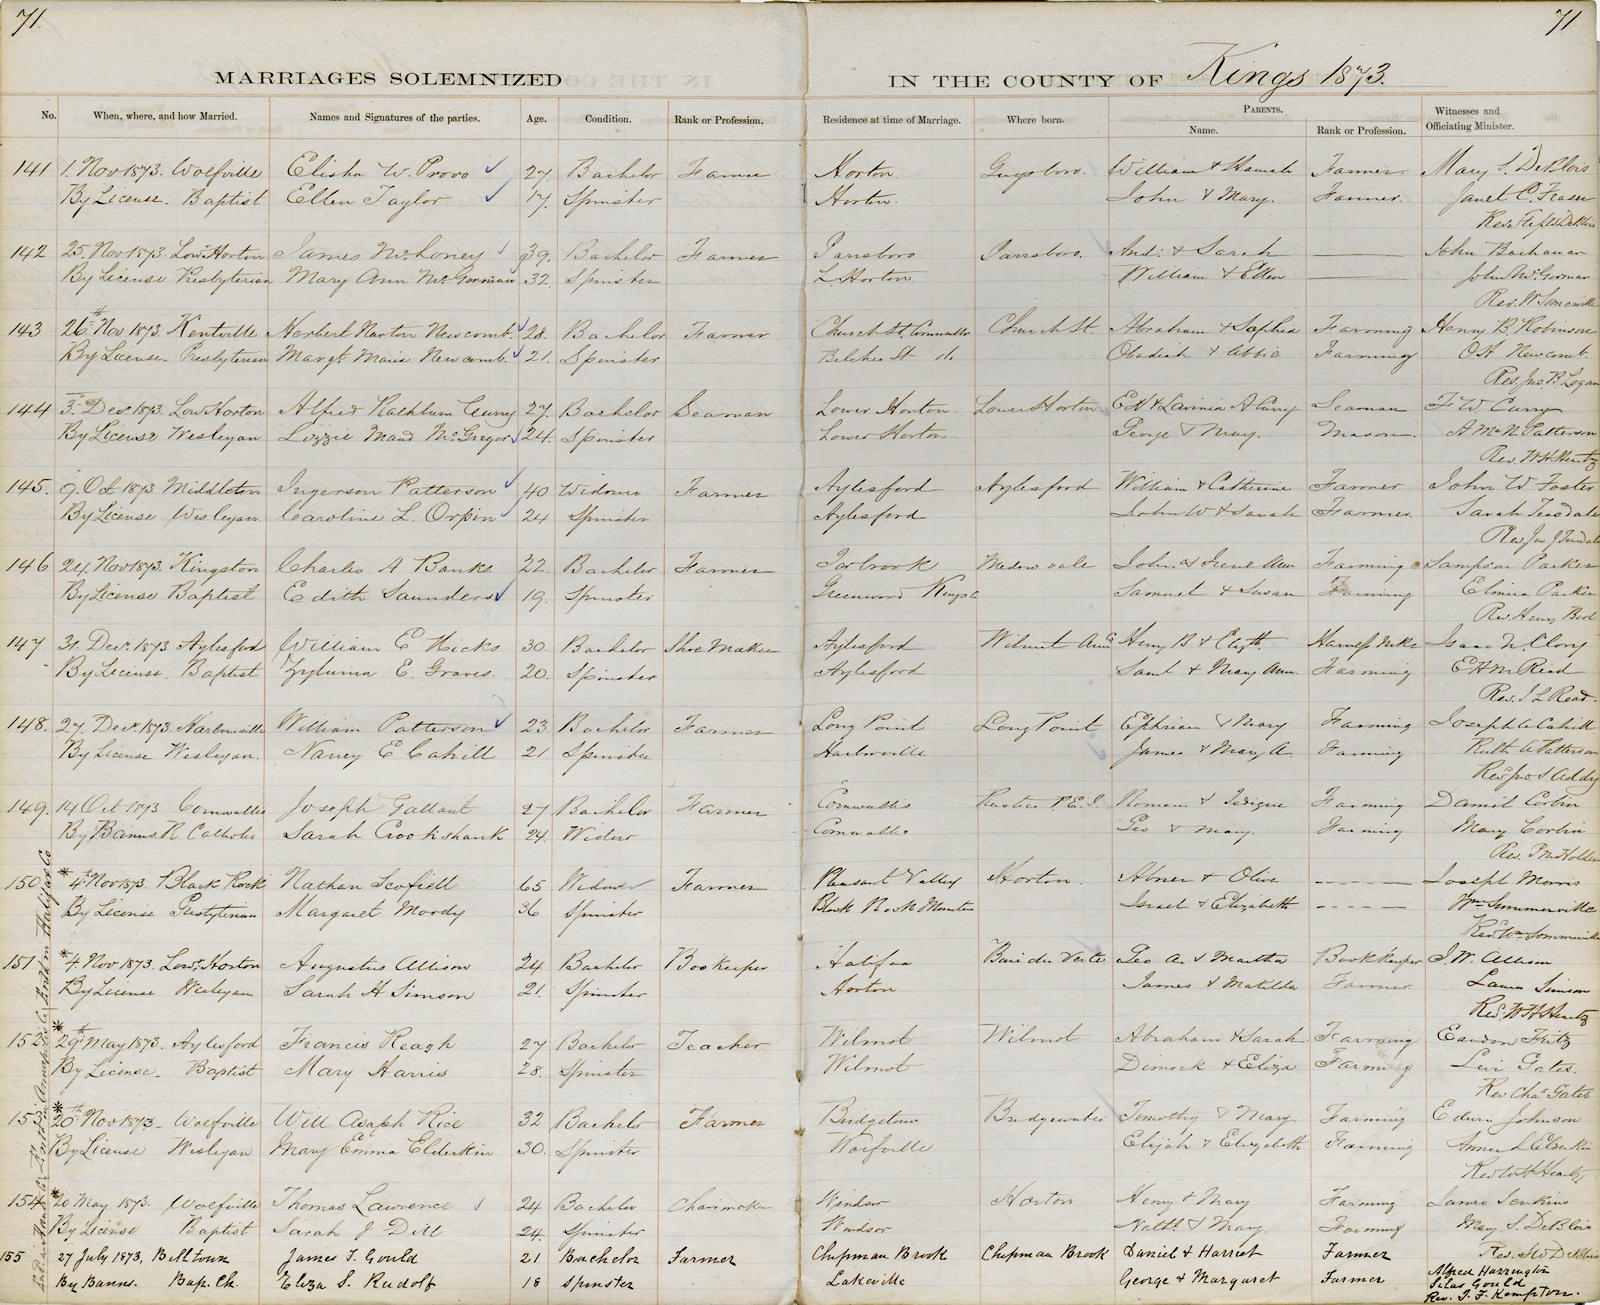 71. 71
MARRIAGES SOLEMNIZED IN THE COUNTY OF Kings 1873.
No. When, where, and how Married. Names and Signatures of the parties. Age. Condition. Rank or Profession. Residence at time of Marriage. Where born. PARENTS. Name. Rank or Profession. Witnesses and Officiating Minister.
141 1. Nov 1873. Wolfville Elisha W. Provo 27 Bachelor Farmer Horton. Guysboro. William & Hannah Farmer. Mary S. DeBlois
By License. Baptist Ellen Taylor 17. Spinster Horton. John & Mary. Farmer. Janet C. Fraser
Rev. DeBlois
142 25. Nov 1873. Lowr Horton James 39. Bachelor Farmer Parrsboro Parrsboro. And. & Sarah John Buchanan
By License Presbyterian Mary Ann McGorman 32. Spinster L. Horton William & Ellen John McGorman
Rev. W Somerville
143 26th Nov 1873 Kentville Herbert Newcomb. 28. Bachelor Farmer Church St. Cornwallis Church St. Abraham & Sophia Farming Henry B. Robinson
By License. Presbyterian Margt. Maria Newcomb. 21. Spinster Belcher St do. Obadiah & Abbie Farming O H Newcomb.
Rev. Jno B Logan
144 3. Dec. 1873. Lowr Horton Alfred Rathburn Curry 27. Bachelor Seaman Lower Horton. Lower Horton & Lavinia A Curry Seaman F W Curry
By License Wesleyan Lizzie Maud McGregor 24. Spinster Lower Horton. George & Mary. Mason. A McN Patterson
Rev. W H Heartz
145. 9. Oct 1873. Middleton Ingerson Patterson 40 Widower Farmer Aylesford Aylesford William & Catherine Farmer John W Foster
By License Wesleyan. Caroline L. Orpin 24 Spinster Aylesford John W & Sarah Farmer. Sarah Teasdale
Rev Jno J Teasdale
146 24. Nov 1873. Kingston Charles A Banks. 22. Bachelor Farmer Torbrook Meadowvale John & Irene Ann Farming Sampson Parker
By License Baptist Edith Saunders 19. Spinster Greenwood Samuel & Susan Farming Elmira Parker
Rev Henry
147 31. Decr. 1873 Aylesford William E Hicks 30. Bachelor Shoe Maker Aylesford Wilmot Henry B & Elizth. Harness Mke Isaac
By License. Baptist E. Graves. 20. Spinster Aylesford Saml & Mary Ann. Farming E H M Read
Rev. J L Read.
148. 27. Decr. 1873. Harbourville William Patterson 23. Bachelor Farmer Long Point Long Point Ephriam & Mary Farming Joseph A Cahill
By License Wesleyan. Nancy E Cahill 21. Spinster Harborville James & Mary A. Farming Ruth A Patterson
Revd Jno S Addy
149. 14 Oct 1873 Cornwallis Joseph Gallant 27 Bachelor Farmer Cornwallis Rustico P.E.I. Romain & Farming Daniel Corbin
By Banns. R Catholic Sarah Crookshank 24. Widow Cornwallis Geo & Mary. Farming Mary Corbin
Rev. P M Holden
150 * 4th Nov 1873. Black Rock Nathan Scofiell 65 Widower Farmer Pleasant Valley Horton. Abner & Olive Joseph Morris
By License Presbyterian Margaret Moody 36 Spinster Black Rock Mountain Israel & Elizabeth Wm Summerville
Revd Wm Sommerville
151 * 4. Nov 1873. Lowr. Horton Augustus Allison 24 Bachelor Bookeeper Halifax Baie de Verte Geo A. & Martha Bookkeeper J. W. Allison
By License Wesleyan Sarah H Simson 21. Spinster Horton James & Matilda Farmer Laura Simson
Revd. W H Heartz
152 * 29th May 1873. Aylesford Francis Reagh 27 Bachelor Teacher Wilmot Wilmot Abraham & Sarah Farming Fritz
By License. Baptist Mary Harris 28. Spinster Wilmot Dimock & Eliza Farming Levi Gates.
Rev Chas Gates
153 * 20th Nov 1873. Wolfville Will Asaph Rice 32 Bachelor Farmer Bridgetown Bridgewater Timothy & Mary Farming Edwin Johnson
By License Wesleyan Mary Emma Elderkin 30. Spinster Wolfville Elijah & Elizabeth Farming Elderkin
Rev W H Heartz
154 * 20 May 1873. Wolfville Thomas Lawrence 24 Bachelor Chairmaker Windsor Horton Henry & Mary Farming James Jenkins
By License Baptist Sarah J Dill 24. Spinster Windsor Nathl & Mary Farming Mary S. DeBlois
Rev. DeBlois
155 27 July 1873, Billtown James T. Gould 21 Bachelor Farmer Chapman Brook Chapman Brook Daniel & Harriet Farmer Alfred Harrington
By Banns. Bap. Ch. Eliza S. Rudolf 18 Spinster Lakeville George & Margaret Farmer Silas Gould
Rev. J. F. Kempton.